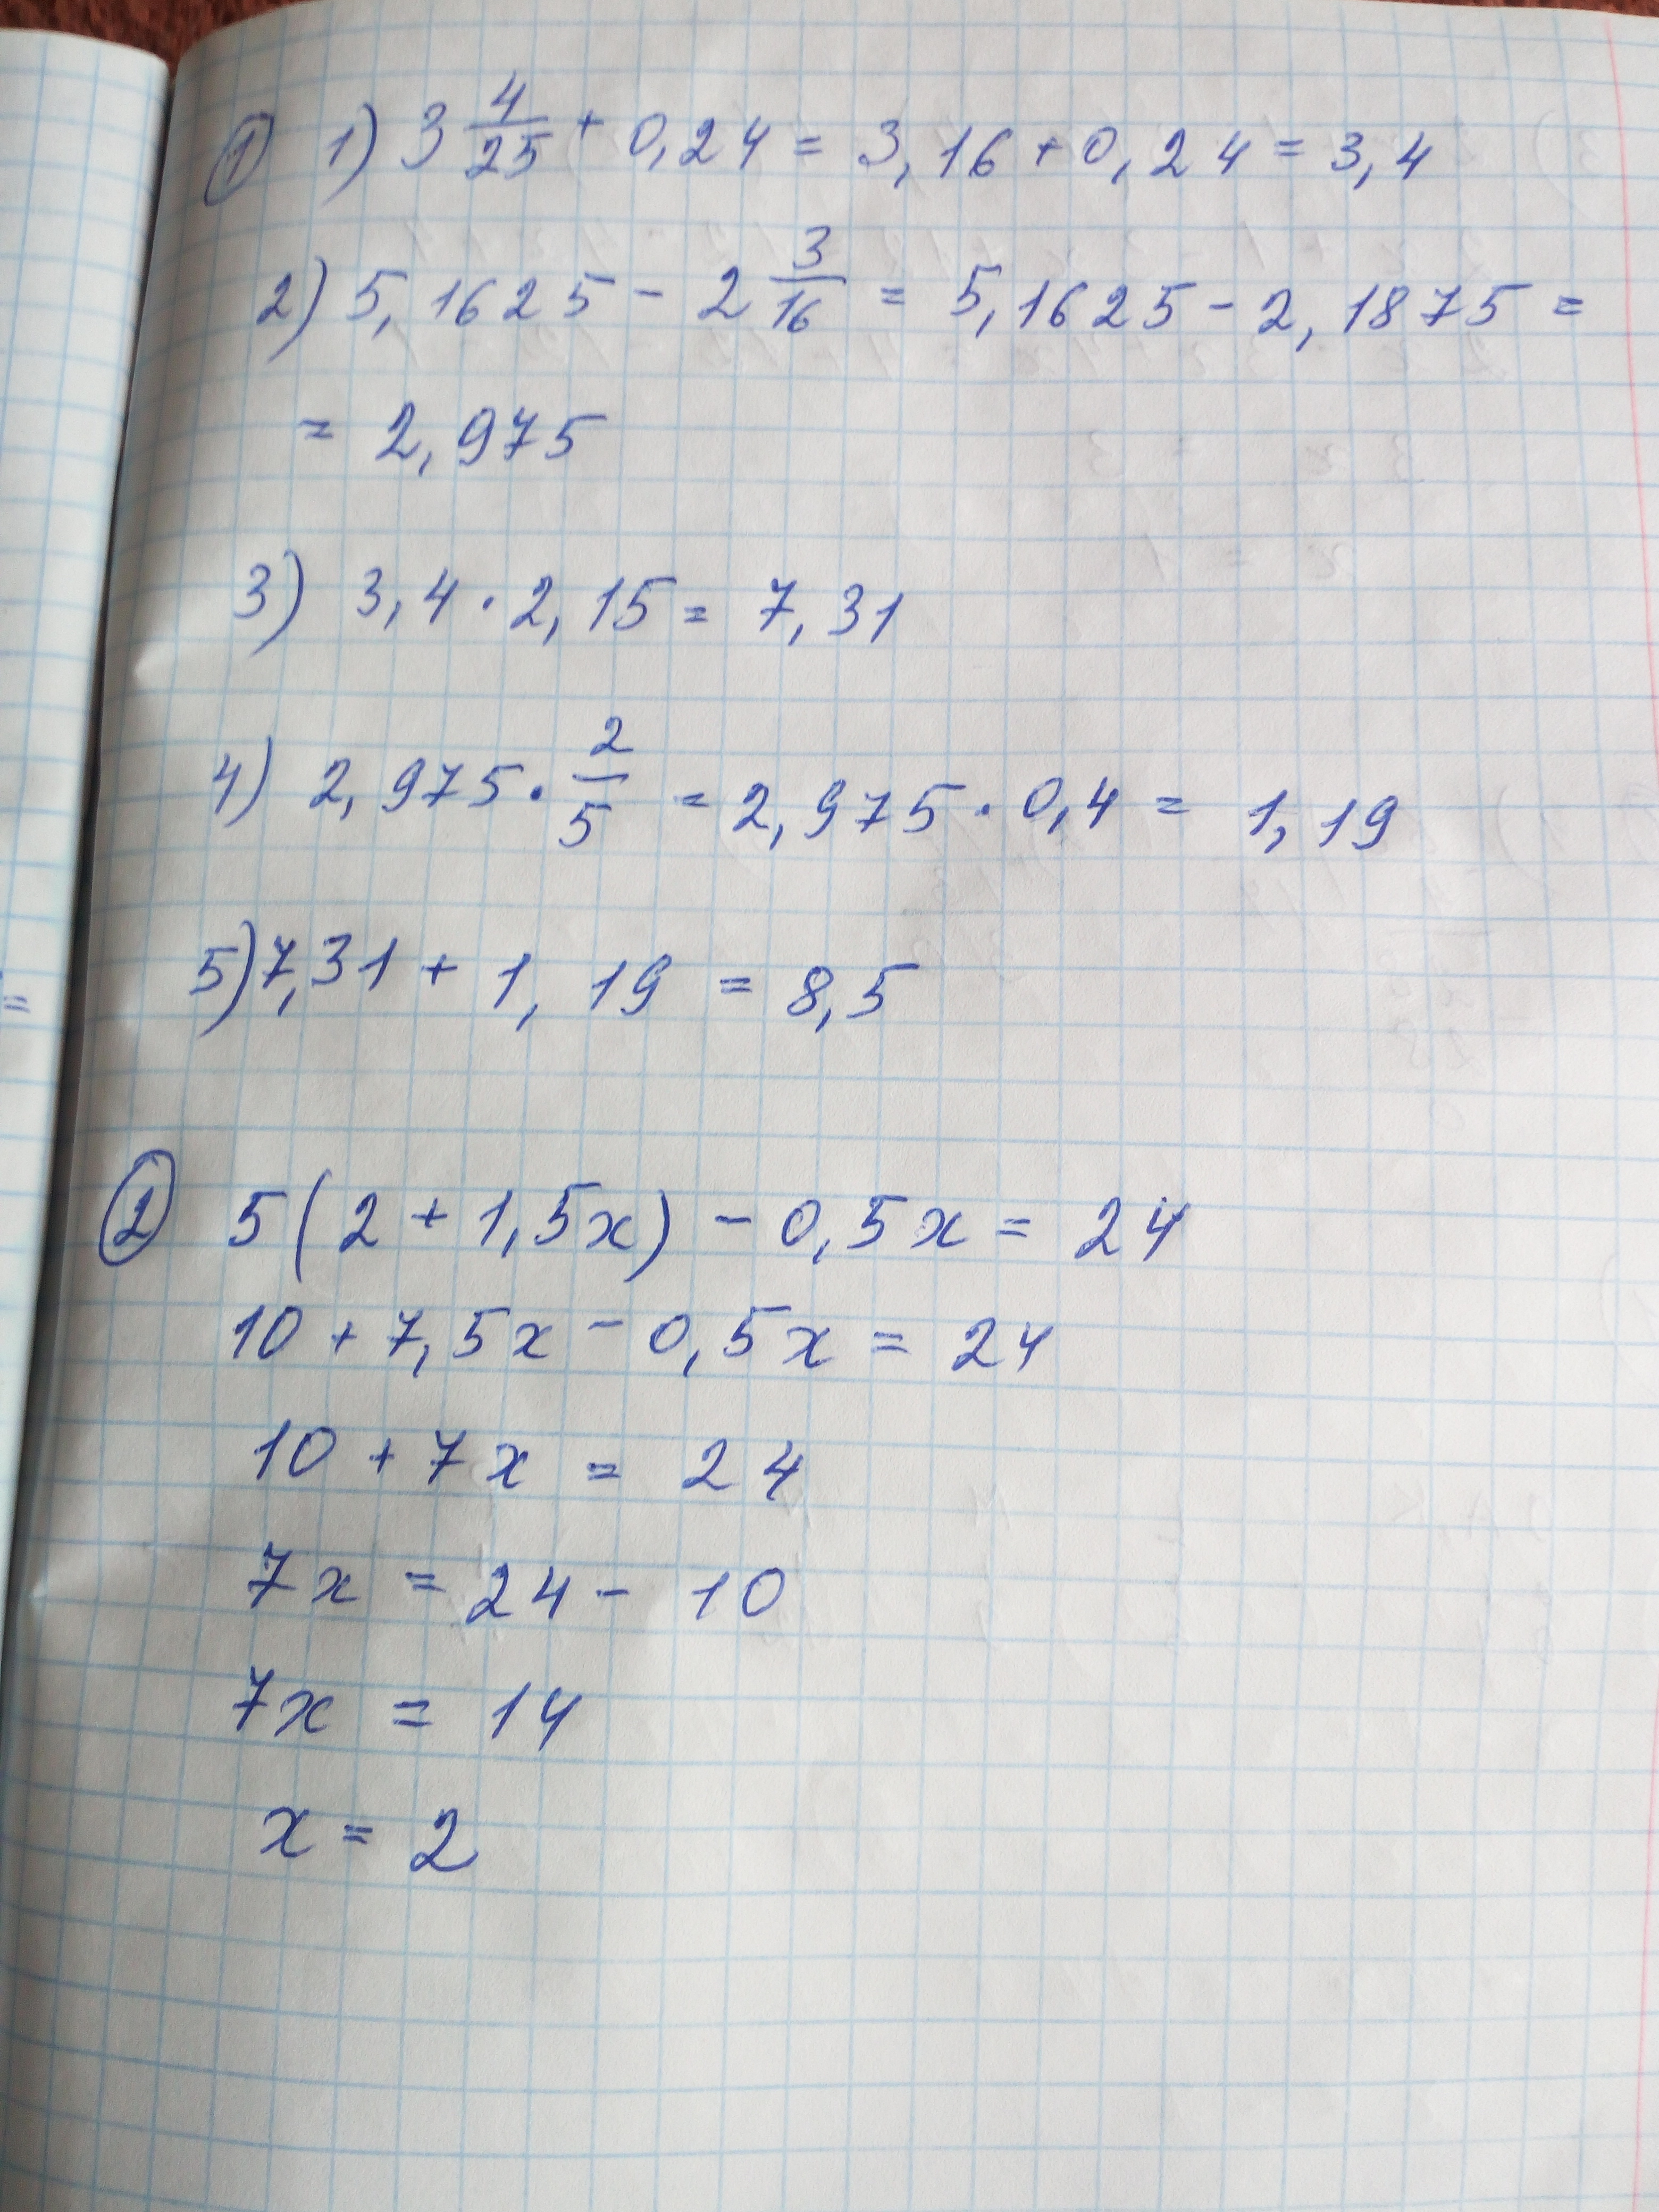 ① 1) 3 4/25 + 0,24 = 3,16 + 0,24 = 3,4
2) 5,1625 - 2 3/16 = 5,1625 - 2,1875 =
= 2,975
3) 3,4 · 2,15 = 7,31
4) 2,975 · 2/5 = 2,975 · 0,4 = 1,19
5) 7,31 + 1,19 = 8,5
② 5(2 + 1,5x) - 0,5x = 24
10 + 7,5x - 0,5x = 24
10 + 7x = 24
7x = 24 - 10
7x = 14
x = 2
=